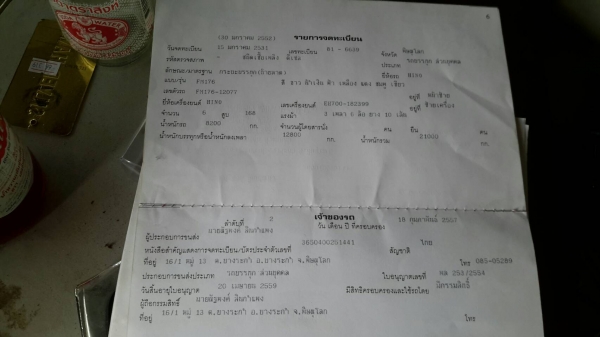 รายการจดทะเบียน
วันจดทะเบียน 15 มกราคม 2531 เลขทะเบียน 81 - 6039 จังหวัด พิษณุโลก
รหัสตรวจสภาพ - ชนิดเชื้อเพลิง ดีเซล ประเภท รถบรรทุก ส่วนบุคคล
ลักษณะ/มาตรฐาน กระบะบรรทุก ยี่ห้อรถ HINO
แบบ/รุ่น FH176 สี ขาว ฟ้า เหลือง แดง ชมพู เขียว
เลขตัวรถ FH176-12077 อยู่ที่
ยี่ห้อเครื่องยนต์ HINO เลขเครื่องยนต์ EH700-182399 อยู่ที่ ซ้ายเครื่อง
จำนวน 6 สูบ 168 แรงม้า 3 เพลา 6 ล้อ ยาง 10 เส้น
น้ำหนักรถ 8200 กก. จำนวนผู้โดยสารนั่ง คน ยืน คน
น้ำหนักบรรทุกหรือน้ำหนักลงเพลา 12800 กก. น้ำหนักรวม 21000 กก.
เจ้าของรถ
ลำดับที่ 2 วัน เดือน ปี ที่ครอบครอง 18 กุมภาพันธ์
ผู้ประกอบการขนส่ง
หนังสือสำคัญแสดงการจดทะเบียน/บัตรประจำตัวเลขที่ 3650400251441 สัญชาติ ไทย
ที่อยู่ 16/1 หมู่ 13 ต.บางระกำ อ.บางระกำ จ.พิษณุโลก โทร 085-05289
ประกอบการขนส่งประเภท รถบรรทุก ส่วนบุคคล ใบอนุญาตเลขที่ พล 251/2554
วันสิ้นอายุใบอนุญาต 20 เมษายน 2559 มีสิทธิครอบครองและใช้รถโดย มีกรรมสิทธิ์
ผู้ถือกรรมสิทธิ์
ที่อยู่ 16/1 หมู่ 13 ต.บางระกำ อ.บางระกำ จ.พิษณุโลก โทร